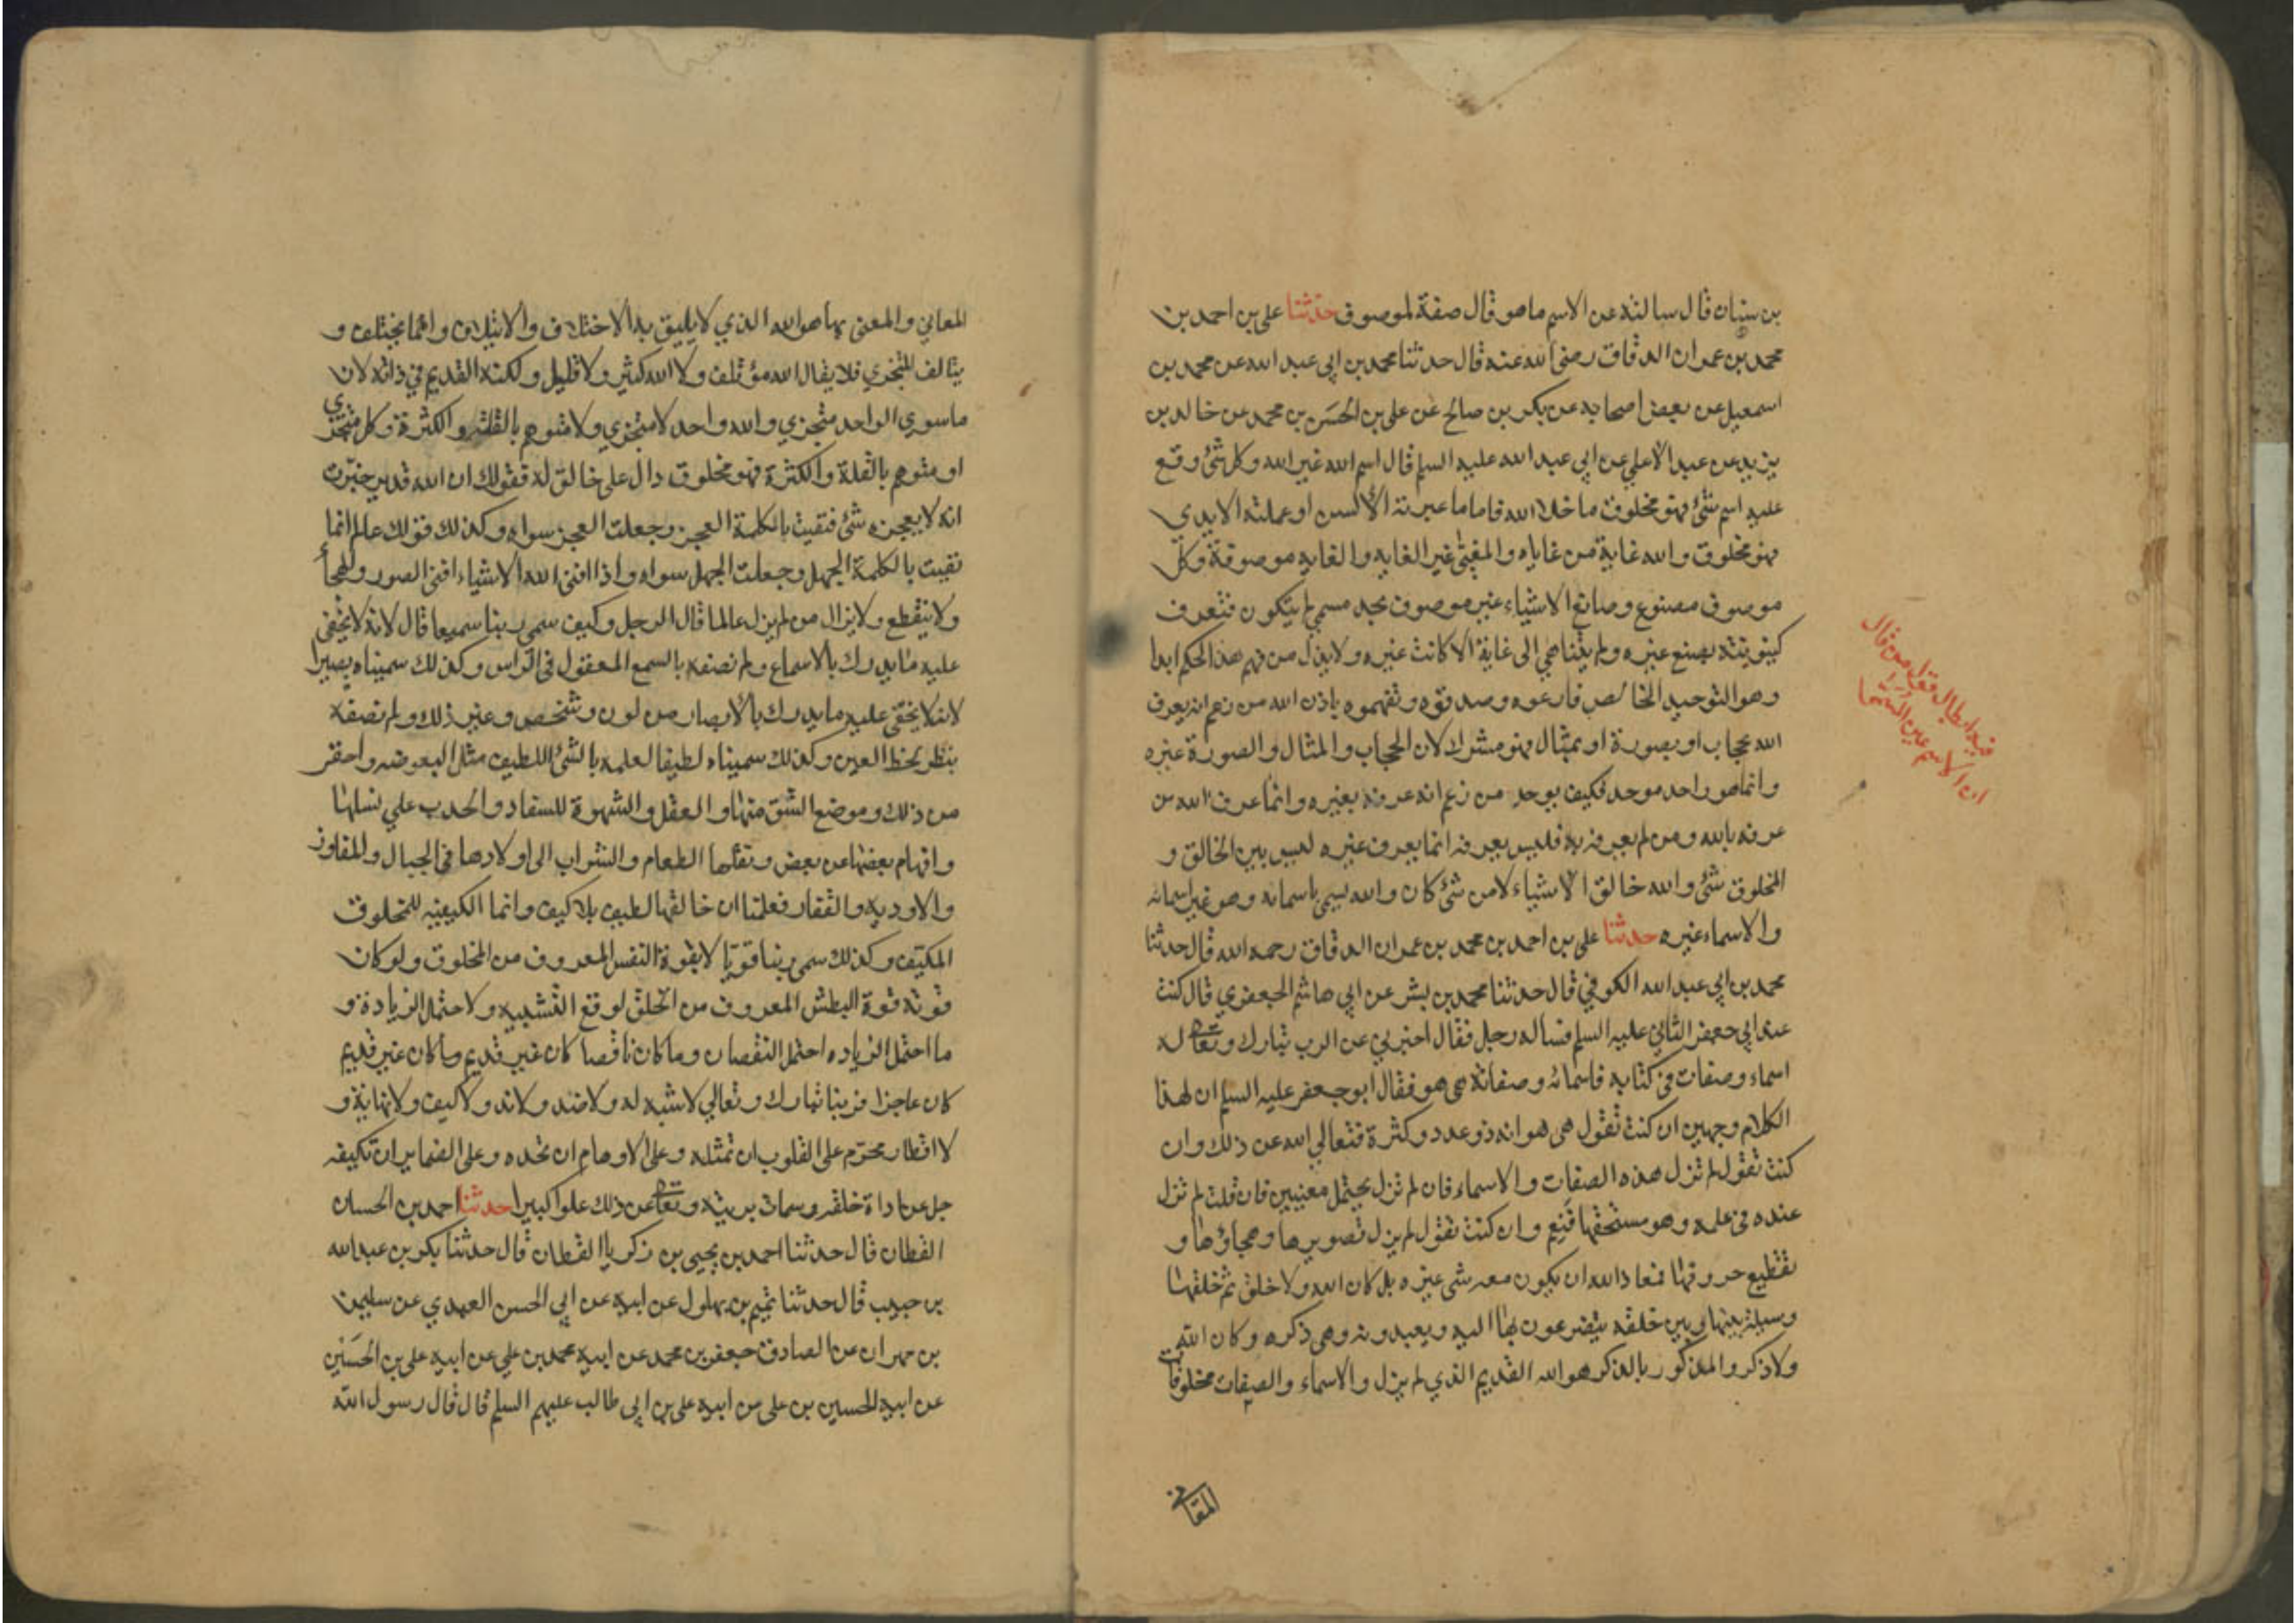 بن سنان قال سالته عن الاسم ماهو قال صفة لموصوف حدثنا علي بن احمد بن
محمد بن عمران الدقاق رضي الله عنه قال حدثنا محمد بن ابي عبد الله عن محمد بن
اسمعيل عن بعض اصحابه عن بكر بن صالح عن علي بن الحسن بن محمد عن خالد بن
يزيد عن عبد الاعلي عن ابي عبد الله عليه السلم قال اسم الله غير الله وكل شئ وقع
عليه اسم شئ فهو مخلوق ماخلا الله فاما ما عبرته الألسن او عملته الايدي
فهو مخلوق والله غاية من غاياه والمغيى غير الغايه والغايه موصوفة وكل
موصوف مصنوع وصانع الاشياء غير موصوف بحد مسمي لم يتكون فتعرف
كينونته بصنع غيره ولم يتناهي الى غاية الا كانت غيره ولا يذل من فهم هذا الحكم ابدا
وهو التوحيد الخالص فارعوه وصدقوه وتفهموه باذن الله من زعم انه يعرف
الله بحجاب او بصورة او بمثال فهو مشرك لان الحجاب والمثال والصورة غيره
وانما هو واحد موحد فكيف يوحد من زعم انه عرفه بغيره وانما عرف الله من
عرفه بالله ومن لم يعرفه به فليس يعرفه انما يعرف غيره ليس بين الخالق و
المخلوق شئ والله خالق الاشياء لا من شئ كان والله يسمي باسمائه وهو غير اسمائه
والاسماء غيره حدثنا علي بن احمد بن محمد بن عمران الدقاق رحمه الله قال حدثنا
محمد بن ابي عبد الله الكوفي قال حدثنا محمد بن بشر عن ابي هاشم الجعفري قال كنت
عند ابي جعفر الثاني عليه السلم فساله رجل فقال اخبرني عن الرب تبارك وتعا له
اسماء وصفات في كتابه فاسمائه وصفاته هي هو فقال ابو جعفر عليه السلم ان لهذا
الكلام وجهين ان كنت تقول هي هو انه ذو عدد وكثرة فتعالي الله عن ذلك وان
كنت تقول لم تزل هذه الصفات والاسماء فان لم تزل يحتمل معنيين فان قلت لم تزل
عنده في علمه وهو مستحقها فنعم وان كنت تقول لم يزل تصويرها وهجاؤها و
تقطيع حروفها فمعاذ الله ان يكون معه شي غيره بل كان الله ولا خلق ثم خلقها
وسيلة بينها وبين خلقه يتضرعون بها اليه ويعبدونه وهي ذكره وكان الله
ولا ذكر والمذكور بالذكر هو الله القديم الذي لم يزل والاسماء والصفات مخلوقات
المعاني
فيه ابطال قول من قال
ان الاسم عين المسمى
المعاني والمعنى بها هو الله الذي لا يليق به الاختلاف والايتلاف وانما يختلف و
يتالف المتجزي فلا يقال الله مؤتلف ولا الله كثير ولا قليل ولكنه القديم في ذاته لان
ماسوي الواحد متجزي والله واحد لا متجزي ولا متوهم بالقلة والكثرة وكل متجزي
او متوهم بالقلة والكثرة فهو مخلوق دال على خالق له فقولك ان الله قدير خبرت
انه لا يعجزه شئ فنفيت بالكلمة العجز وجعلت العجز سواه وكذلك قولك عالم انما
نفيت بالكلمة الجهل وجعلت الجهل سواه واذا افنى الله الاشياء افنى الصور والهجأ
ولا ينقطع ولا يزال من لم يزل عالما قال الرجل وكيف سمي ربنا سميعا قال لانه لا يخفى
عليه ما يدرك بالاسماع ولم نصفه بالسمع المعقول في الراس وكذلك سميناه بصيرا
لانه لا يخفى عليه ما يدرك بالأبصار من لون وشخص وغير ذلك ولم نصفه
بنظر لحظ العين وكذلك سميناه لطيفا لعلمه بالشئ اللطيف مثل البعوضه واحقر
من ذلك وموضع الشق منها والعقل والشهوة للسفاد والحدب علي نسلها
وافهام بعضها عن بعض ونقلها الطعام والشراب الى اولادها في الجبال والمفاوز
والاوديه والقفار فعلمنا ان خالقها لطيف بلا كيف وانما الكيفيه للمخلوق
المكيف وكذلك سمي ربنا قويا لا بقوة النفس المعروف من المخلوق ولو كان
قوته قوة البطش المعروف من الخلق لوقع التشبيه ولاحتمل الزيادة و
ما احتمل الزياده احتمل النقصان وما كان ناقصا كان غير قديم وما كان غير قديم
كان عاجزا فربنا تبارك وتعالي لا شبه له ولا ضد ولا ند ولا كيف ولا نهاية و
لا اقطار محرم على القلوب ان تمثله وعلى الاوهام ان تحده وعلى الضماير ان تكيفه
جل عن اداة خلقه وسمات بريته وتعا عن ذلك علوا كبيرا حدثنا احمد بن الحسن
القطان قال حدثنا احمد بن يحيى بن زكريا القطان قال حدثنا بكر بن عبد الله
بن حبيب قال حدثنا تميم بن بهلول عن ابيه عن ابي الحسن العبدي عن سليمن
بن مهران عن الصادق جعفر بن محمد عن ابيه محمد بن علي عن ابيه علي بن الحسين
عن ابيه الحسين بن علي عن ابيه علي بن ابي طالب عليهم السلم قال قال رسول الله